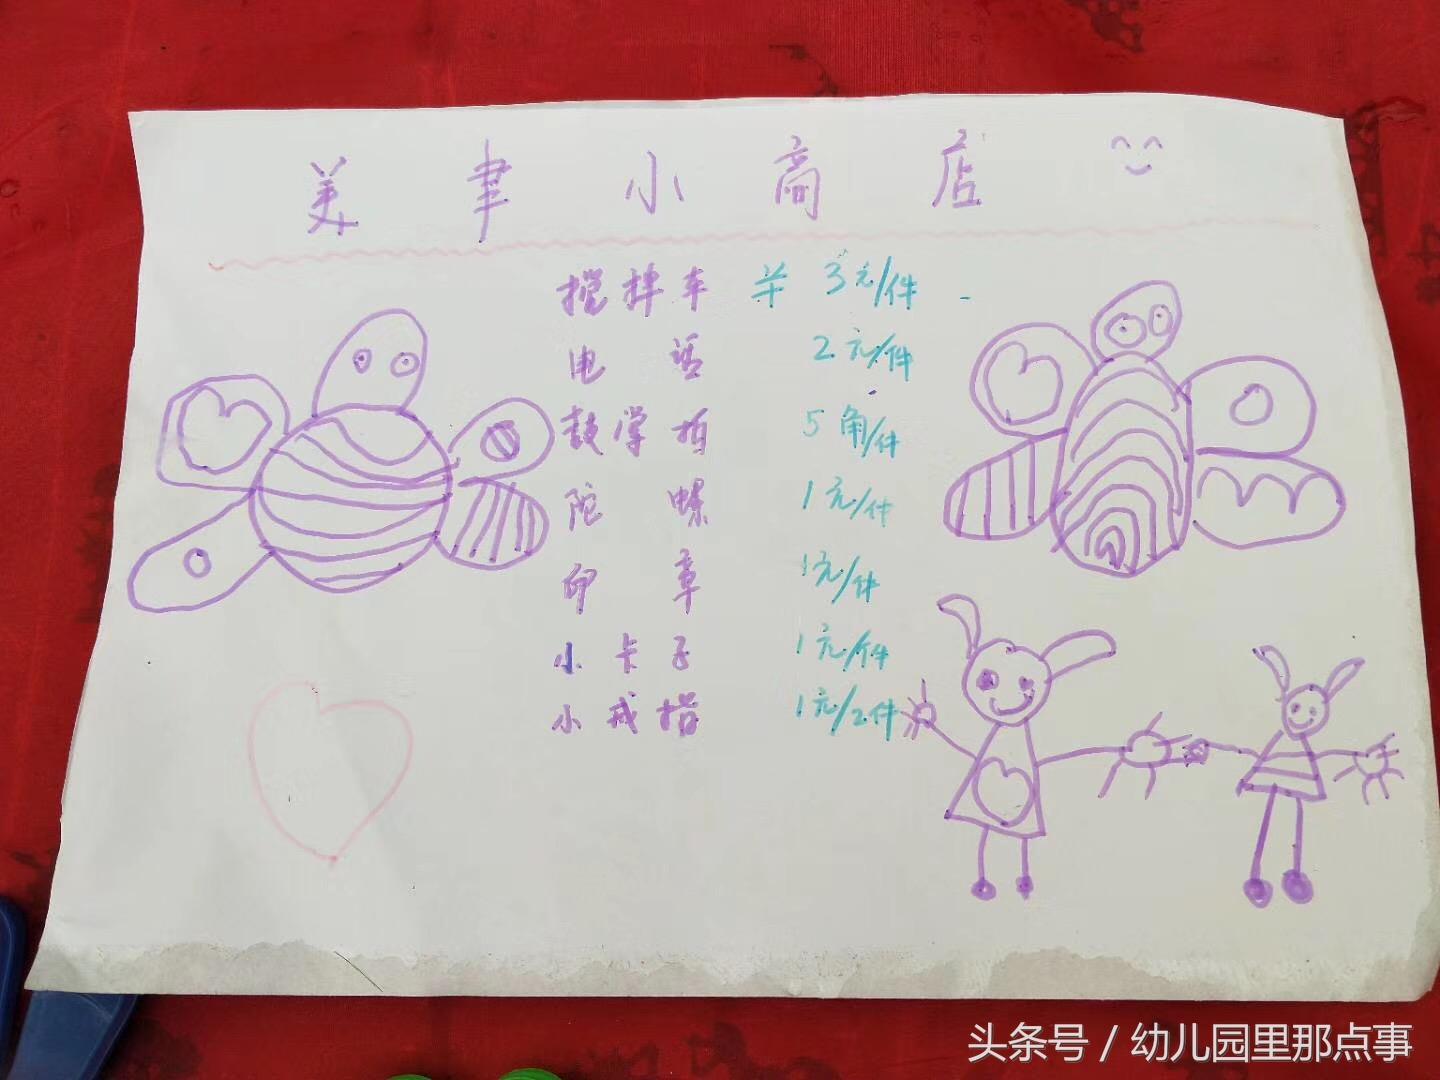 美聿小商店
搅拌车 羊 3元/件
电话 2元/件
鼓掌拍 5角/件
陀螺 1元/件
印章 1元/件
小卡子 1元/件
小戒指 1元/2件
头条号 / 幼儿园里那点事